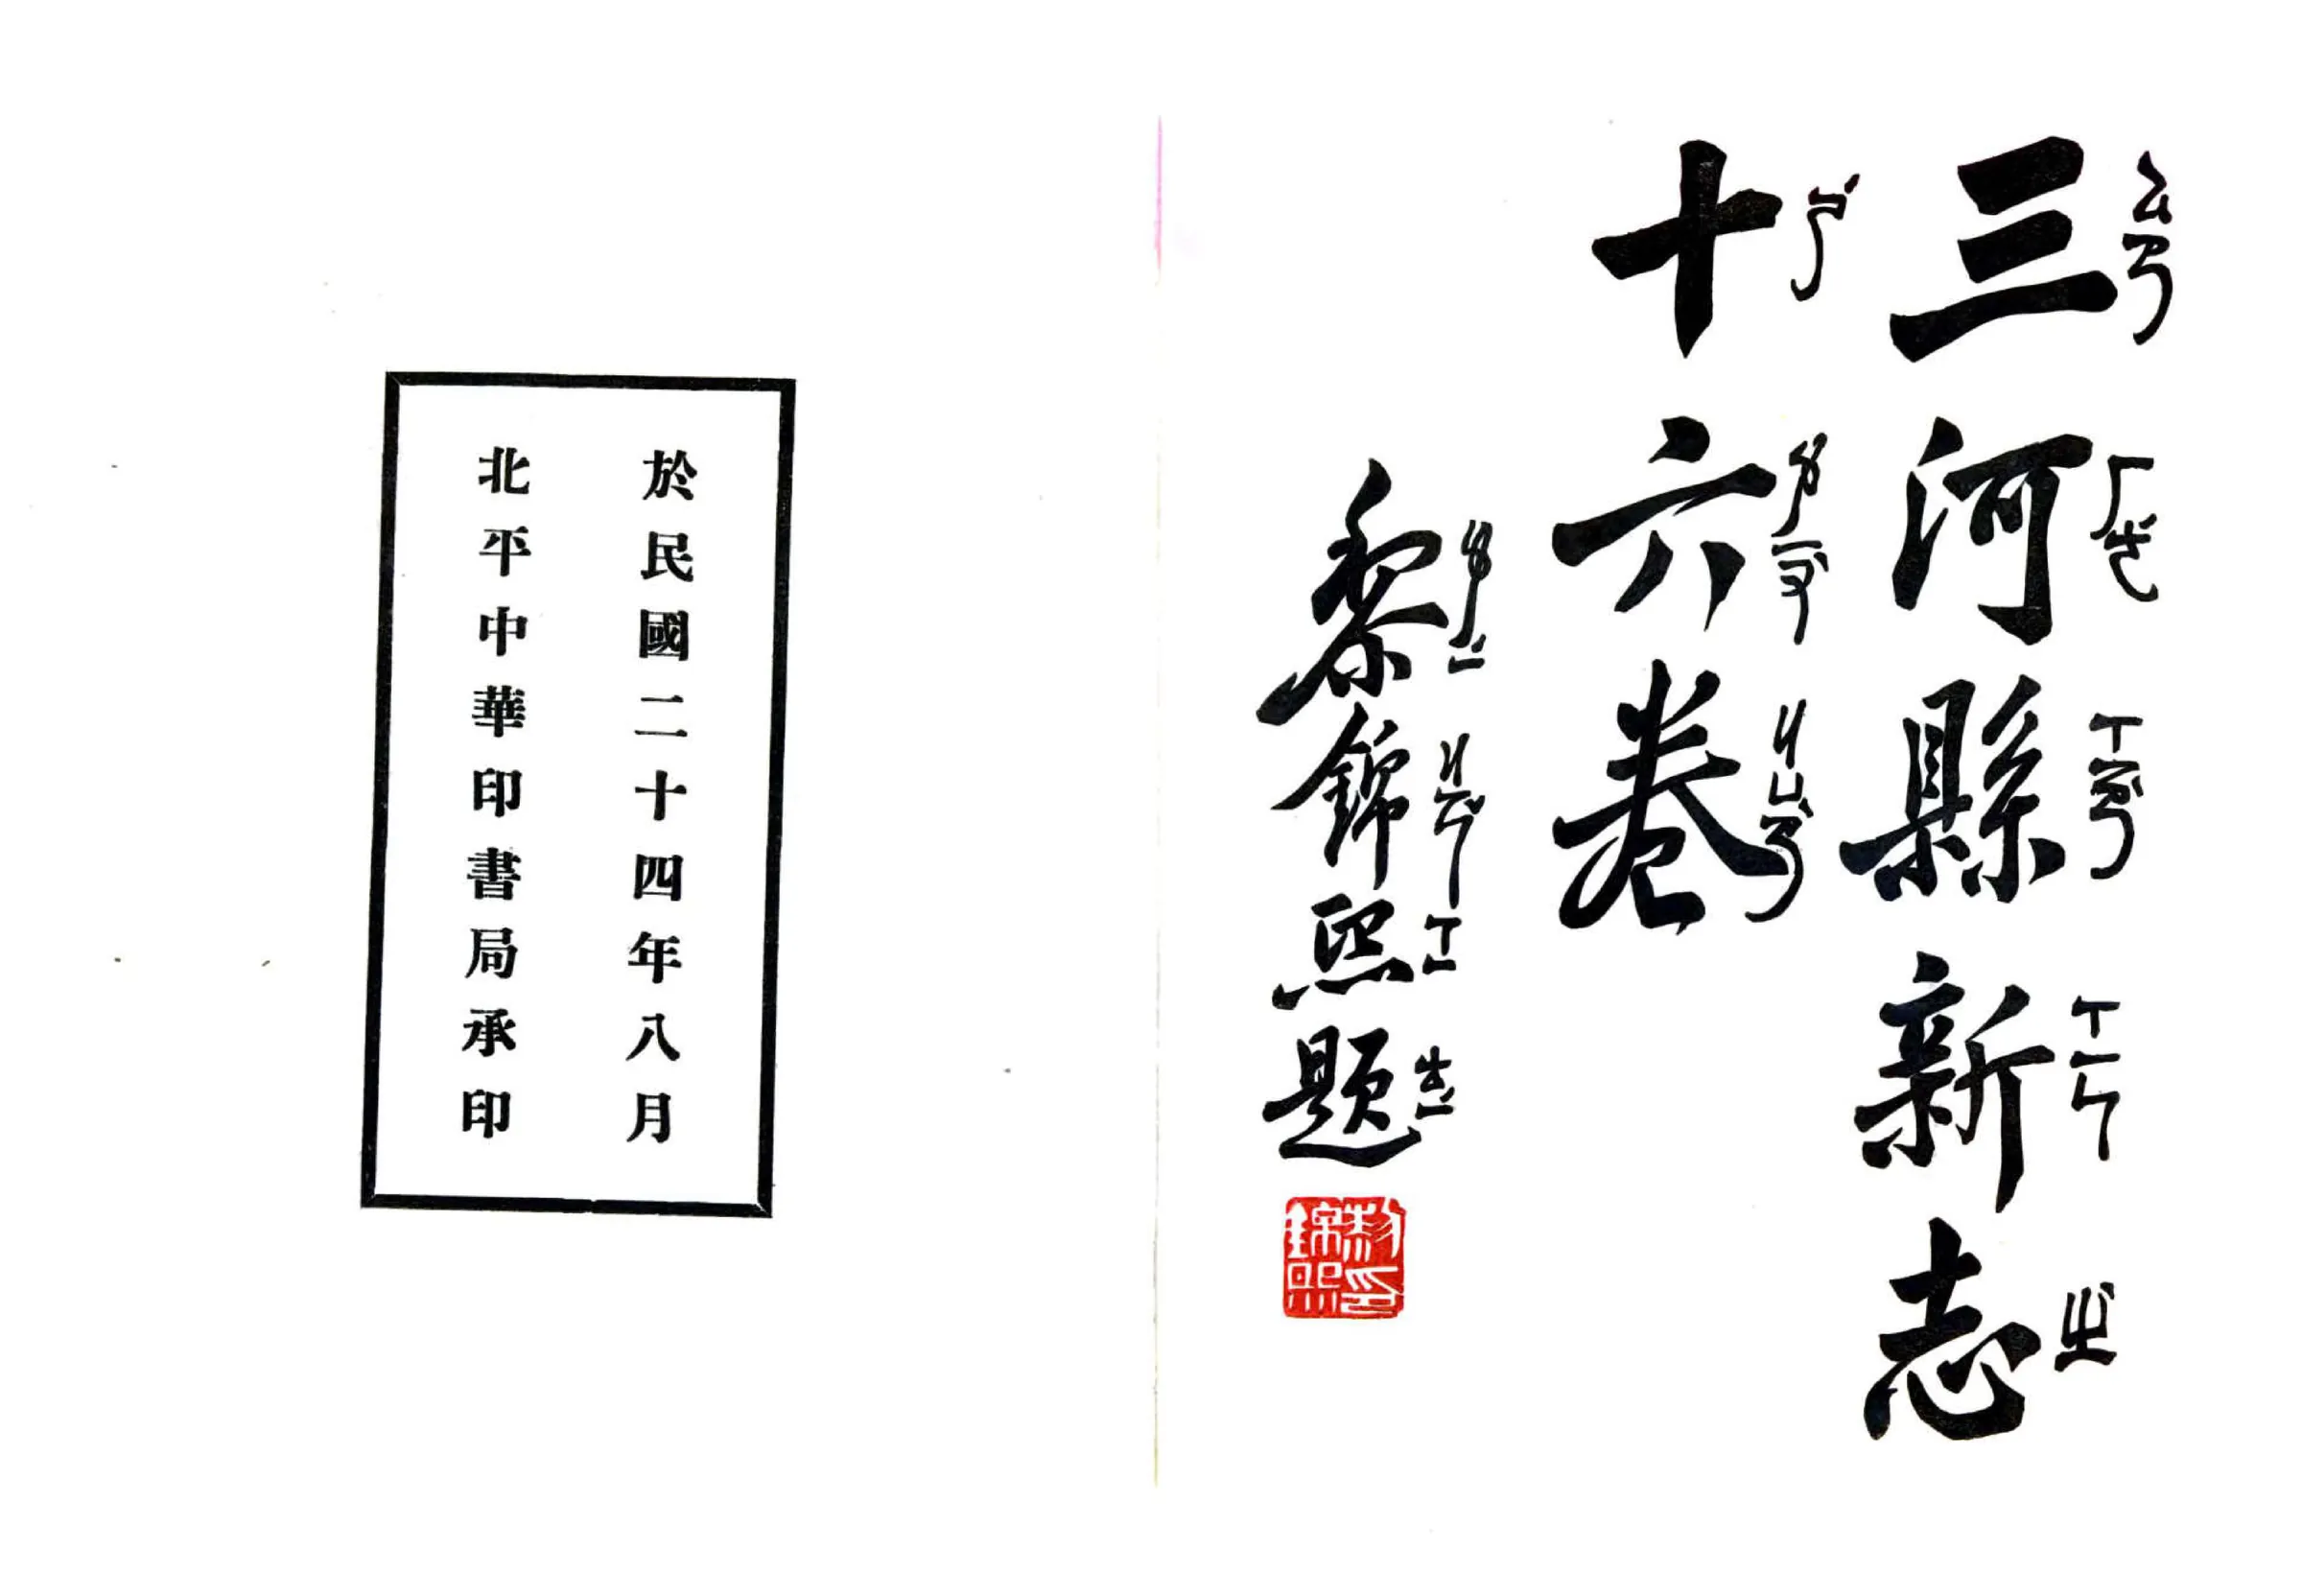 三河縣新志
ㄙㄢ ㄏㄜˊ ㄒㄧㄢˋ ㄒㄧㄣ ㄓˋ
十六卷
ㄕˊ ㄌㄧㄡˋ ㄐㄩㄢˋ
黎錦熙題
ㄌㄧˊ ㄐㄧㄣˇ ㄒㄧ ㄊㄧˊ
黎印
錦熙
於民國二十四年八月
北平中華印書局承印